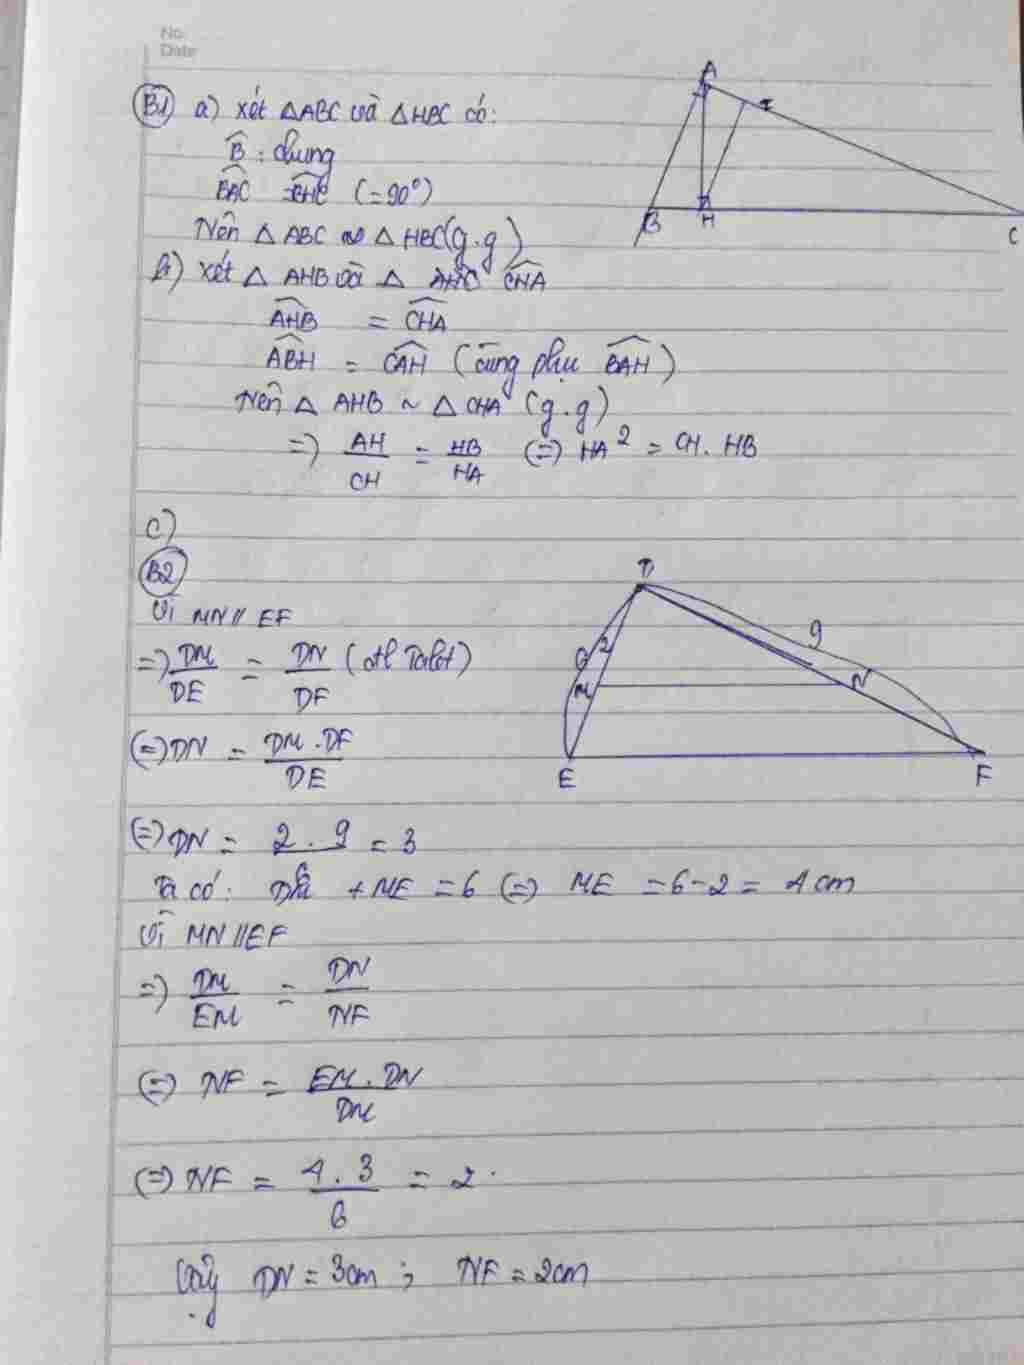 No.
Date
B1 a) Xét △ABC và △HBC có:
B̂ : chung
BAC = CHC (= 90°)
Nên △ ABC ∽ △ HBC (g.g)
b) Xét △ AHB và △ CHA
AHB = CHA
ABH = CAH (cùng phụ BAH)
Nên △ AHB ~ △ CHA (g.g)
=> AH/CH = HB/HA (=) HA² = CH. HB
c)
B2
Vì MN // EF
=> DM/DE = DN/DF (đl Talet)
(=) DN = DM . DF/DE
(=) DN = 2 . 9/6 = 3
Ta có: DM + ME = 6 (=) ME = 6 - 2 = 4 cm
Vì MN // EF
=> DM/EM = DN/NF
(=) NF = EM . DN/DM
(=) NF = 4 . 3/6 = 2
Vậy DN = 3cm ; NF = 2cm
A
I
B
H
C
D
6
2
9
M
N
E
F